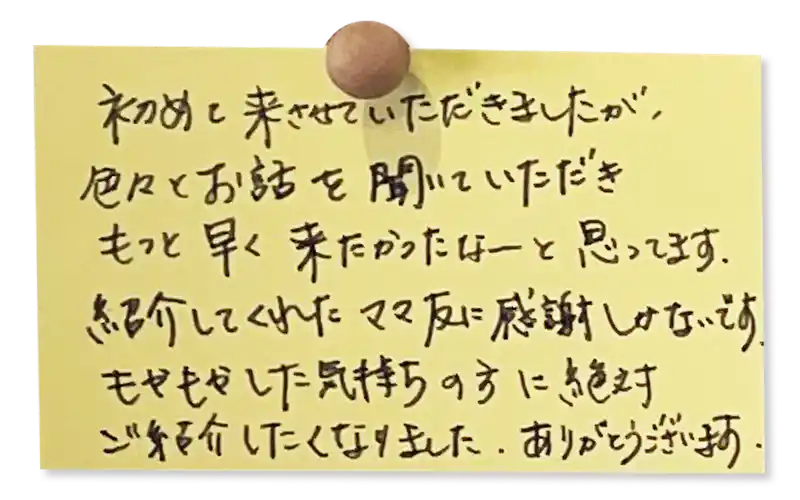 初めて来させていただきましたが、
色々とお話を聞いていただき
もっと早く来たかったなーと思ってます.
紹介してくれたママ友に感謝しかないです.
もやもやした気持ちの方に絶対
ご紹介したくなりました.ありがとうございます.